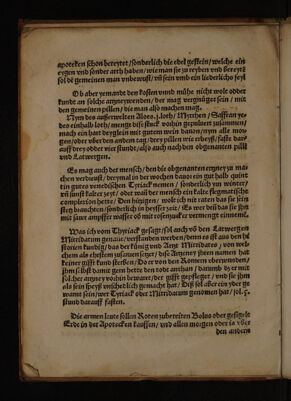 apoteken schon bereytet / sonderlich die edel gestein / welche ein
eygen vnd sonder arth haben / wie man sie zu reyben vnd bereyt
sol de gemeinen man vnbewust / vn sein vmb ein liederlichs feyl
Ob aber yemandt den kosten vnnd mühe nicht wole odder
kundt an solche artzneywenden / der mag vergnüget sein / mit
den gemeinen pillen / die man also machen mag.
Nym des außerwelten Aloes .j. loth / Myrrhen / Saffran ye-
des einhalb loth / menge dise stuck vorhin gepuluert zusammen /
mach ein hart deyglein mit gutem wein dauon / nym alle mor-
gen / oder vber den andern tag / drey pillen wie erbsen / faste dar
auff drey odder vier stund / also auch nach den obgenanten pilln
vnd Latwergen.
Es mag auch der mensch / den die obgenanten ertzney zu ma-
chen verdreust / dreymal in der wochen dauo ein gut halb quint
tin gutes venedischen Tyriack nemen / sonderlich ym winter /
vn sunst kalter zeyt / oder wo der mensch ein kalte flegmatische
complexion hette / Den hitzigen / wolt ich nit raten das sie sein
stetz brauchten / sonderlich in heysser zeit / Es wer dan sie ihn
mit saur ampffer wasser od mit rosenwasser vermengt einneme.
Was ich vom Thyriack gesagt / sol auch vo den Latwergen
Mittidatum genant / verstanden werden / denn es ist auß den hi
storien kundig / das der künig von Asie Mittidates / von welch
em als ehestem zusamen gesetzt / dise Artzney schen namen hat
keiner gifft kund sterben / Do er von den Romern oberwonden /
ihm selbst damit gern hette den tode anthan / darumb dz er mit
solcher artzney vorhin bewaret / der gifft gepfleget / vnd sie ihm
als sein speyß vnschedlich gemacht hat / Diß sol aber ein yder
wann sein / wer Tyriack oder Mittidatum genomen hat / sol .v.
stund darauff fasten.
Die armen leute sollen Roten zubereiten Bolus oder gesigelt
Erde in der Apotecken kauffen / vnd allen morgen oder ia vber
den andern